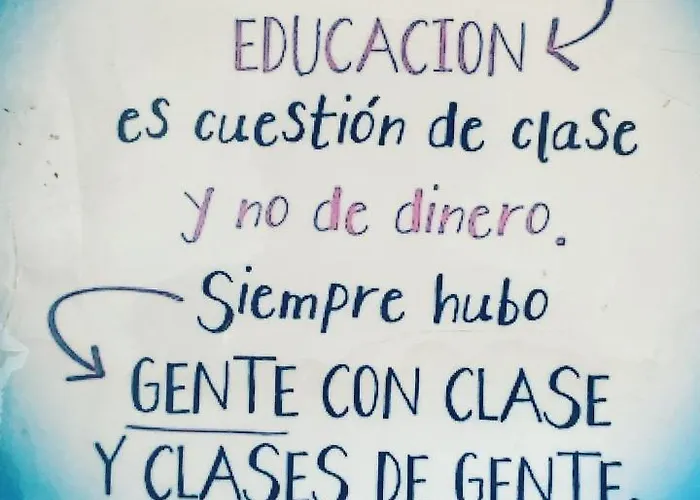 EDUCACION
es cuestión de clase
y no de dinero.
Siempre hubo
GENTE CON CLASE
Y CLASES DE GENTE.